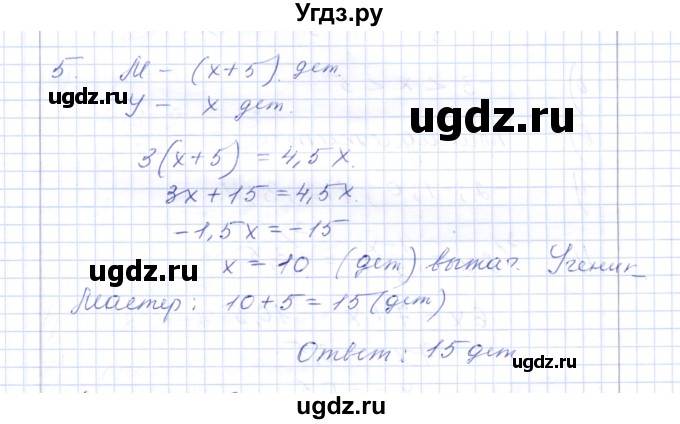 Угдз.ру
5. М – (x+5) дет.
ugdz.ru
У – x дет.
ugdz.ru
ugdz.ru
3(x+5) = 4,5x.
3x+15 = 4,5x.
-1,5x = -15
ugdz.ru
x = 10 (дет) вытач. Ученик
ugdz.ru
Мастер: 10+5 = 15 (дет)
Ответ: 15 дет
ugdz.ru
ugdz.ru